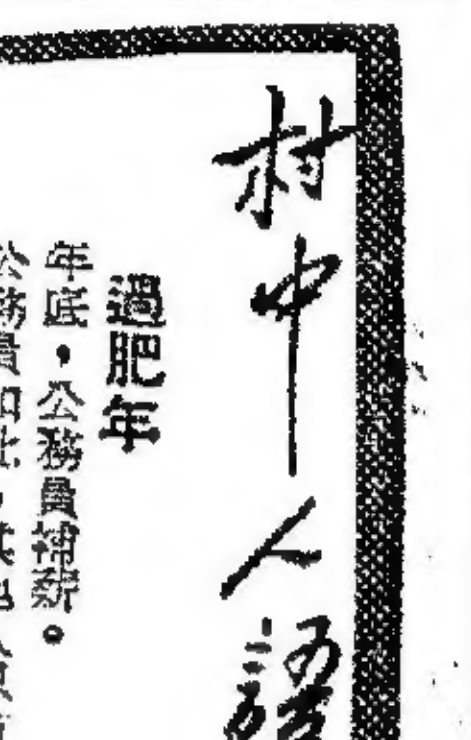 村中人語
過肥年
年底，公務員補薪。
公務員如此，其他人員